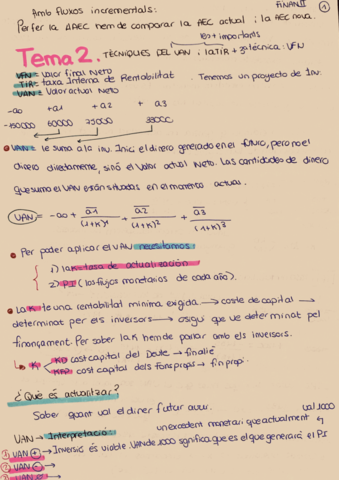 Amb fluxos incrementals:
FINAN II
1
Per fer la ΔAEC hem de comparar la AEC actual i la AEC nova.
las + importants
Tema 2. TÉCNIQUES DEL VAN i la TIR + 3a tècnica: VFN
VFN = Valor final Neto
TIR = taxa Interna de Rentabilitat. Tenemos un proyecto de Inv:
VAN = Valor actual Neto
-a0 +a1 +a2 a3
-150000 60000 75000
VAN = le sumo a la inv. Inic. el dinero generado en el futuro, pero no el
dinero directamente, sinó el Valor actual Neto. Las cantidades de dinero
que sumo el VAN están situadas en el momento actual.
VAN = -a0 + a1/(1+K)¹ + a2/(1+K)² + a3/(1+K)³
Per poder aplicar el VAN necesitamos:
1) la K = tasa de actualización
2) PI (los flujos monetarios de cada año).
La K té una rentabilitat mínima exigida → coste de capital →
determinat per els inversors → osigui que ve determinat pel
finançament. Per saber la K hem de parlar amb els inversors.
K KD cost capital del Deute → fin alié
KFP cost capital dels fons propis → fin propi.
¿Qué és actualitzar?
Saber quant val el diner futur avui.
val 1000
VAN → Interpretació: un excedent monetari que actualment
① VAN ⊕ → Inversió és viable VAN de 1000 significa que es el que generarà el PI
② VAN ⊖ →
③ VAN